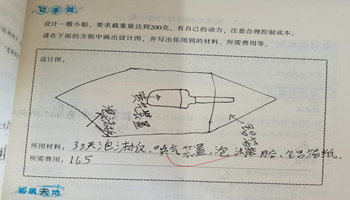 动手做
设计一艘小船，要求载重量达到200克，有自己的动力，注意合理控制成本。
请在下面的方框中画出设计图，并写出你用到的材料、所需费用等。
设计图：
喷气装置
泡沫板
所用材料：3块泡沫板、喷气装置、泡沫胶、
所需费用：165
拓展天地